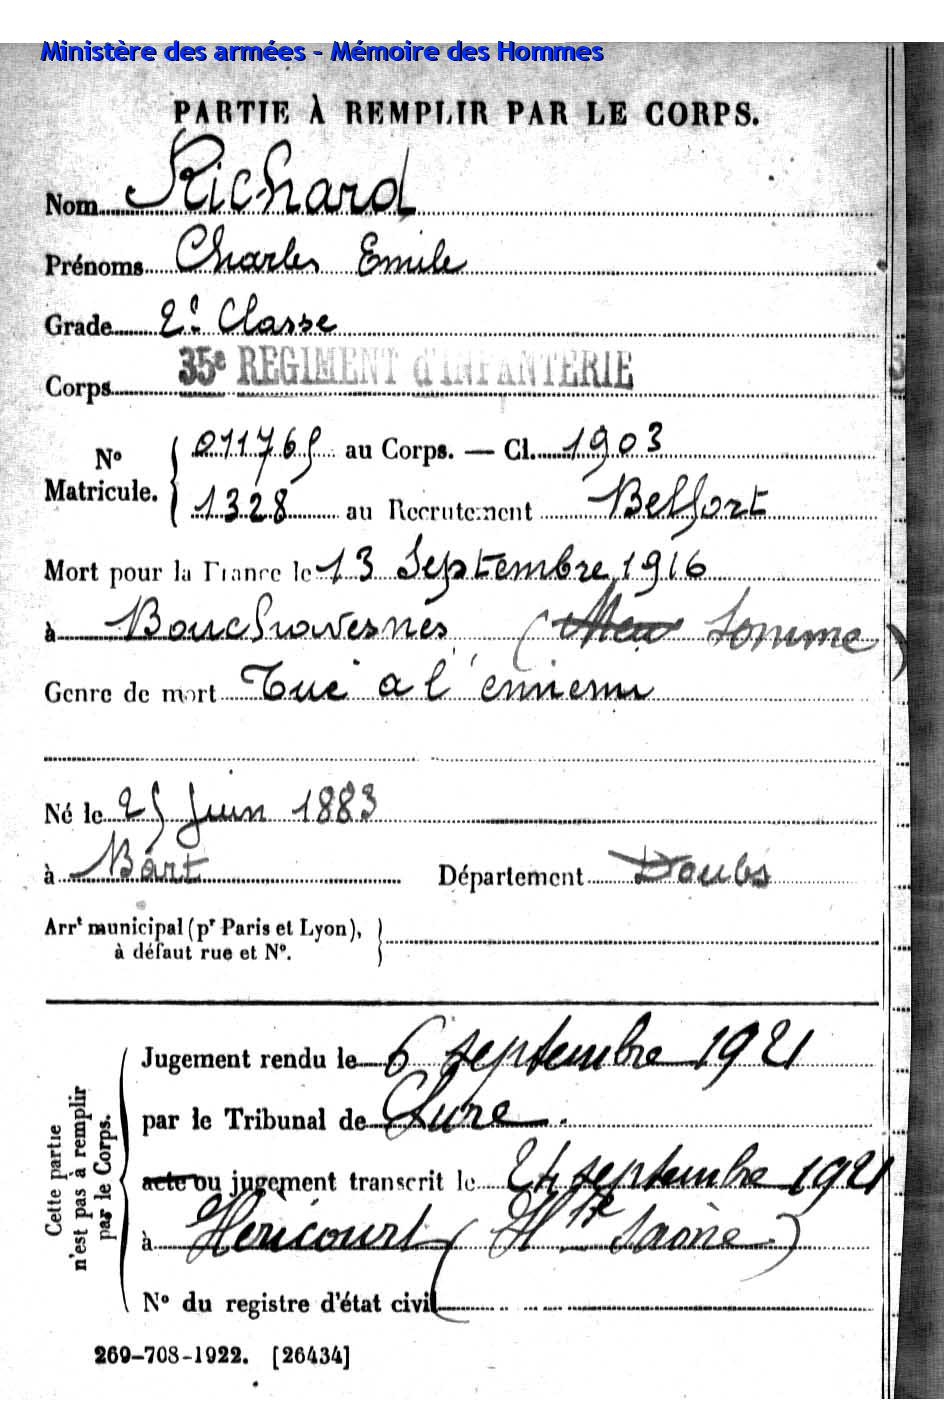 Ministère des armées - Mémoire des Hommes
PARTIE À REMPLIR PAR LE CORPS.
Nom Richard
Prénoms Charles Emile
Grade 2e Classe
Corps 35e REGIMENT d'INFANTERIE
No Matricule. { 011765 au Corps. — Cl. 1903
1328 au Recrutement Belfort
Mort pour la France le 13 Septembre 1916
à Bouchavesnes ( Somme )
Genre de mort Tué à l'ennemi
Né le 25 Juin 1883
à Bart Département Doubs
Arrt municipal (pr Paris et Lyon),
à défaut rue et No.
Cette partie n'est pas à remplir par le Corps.
Jugement rendu le 6 septembre 1921
par le Tribunal de Lure.
acte ou jugement transcrit le 24 septembre 1921
à Héricourt ( Hte Saône )
No du registre d'état civil
269-708-1922. [26434]